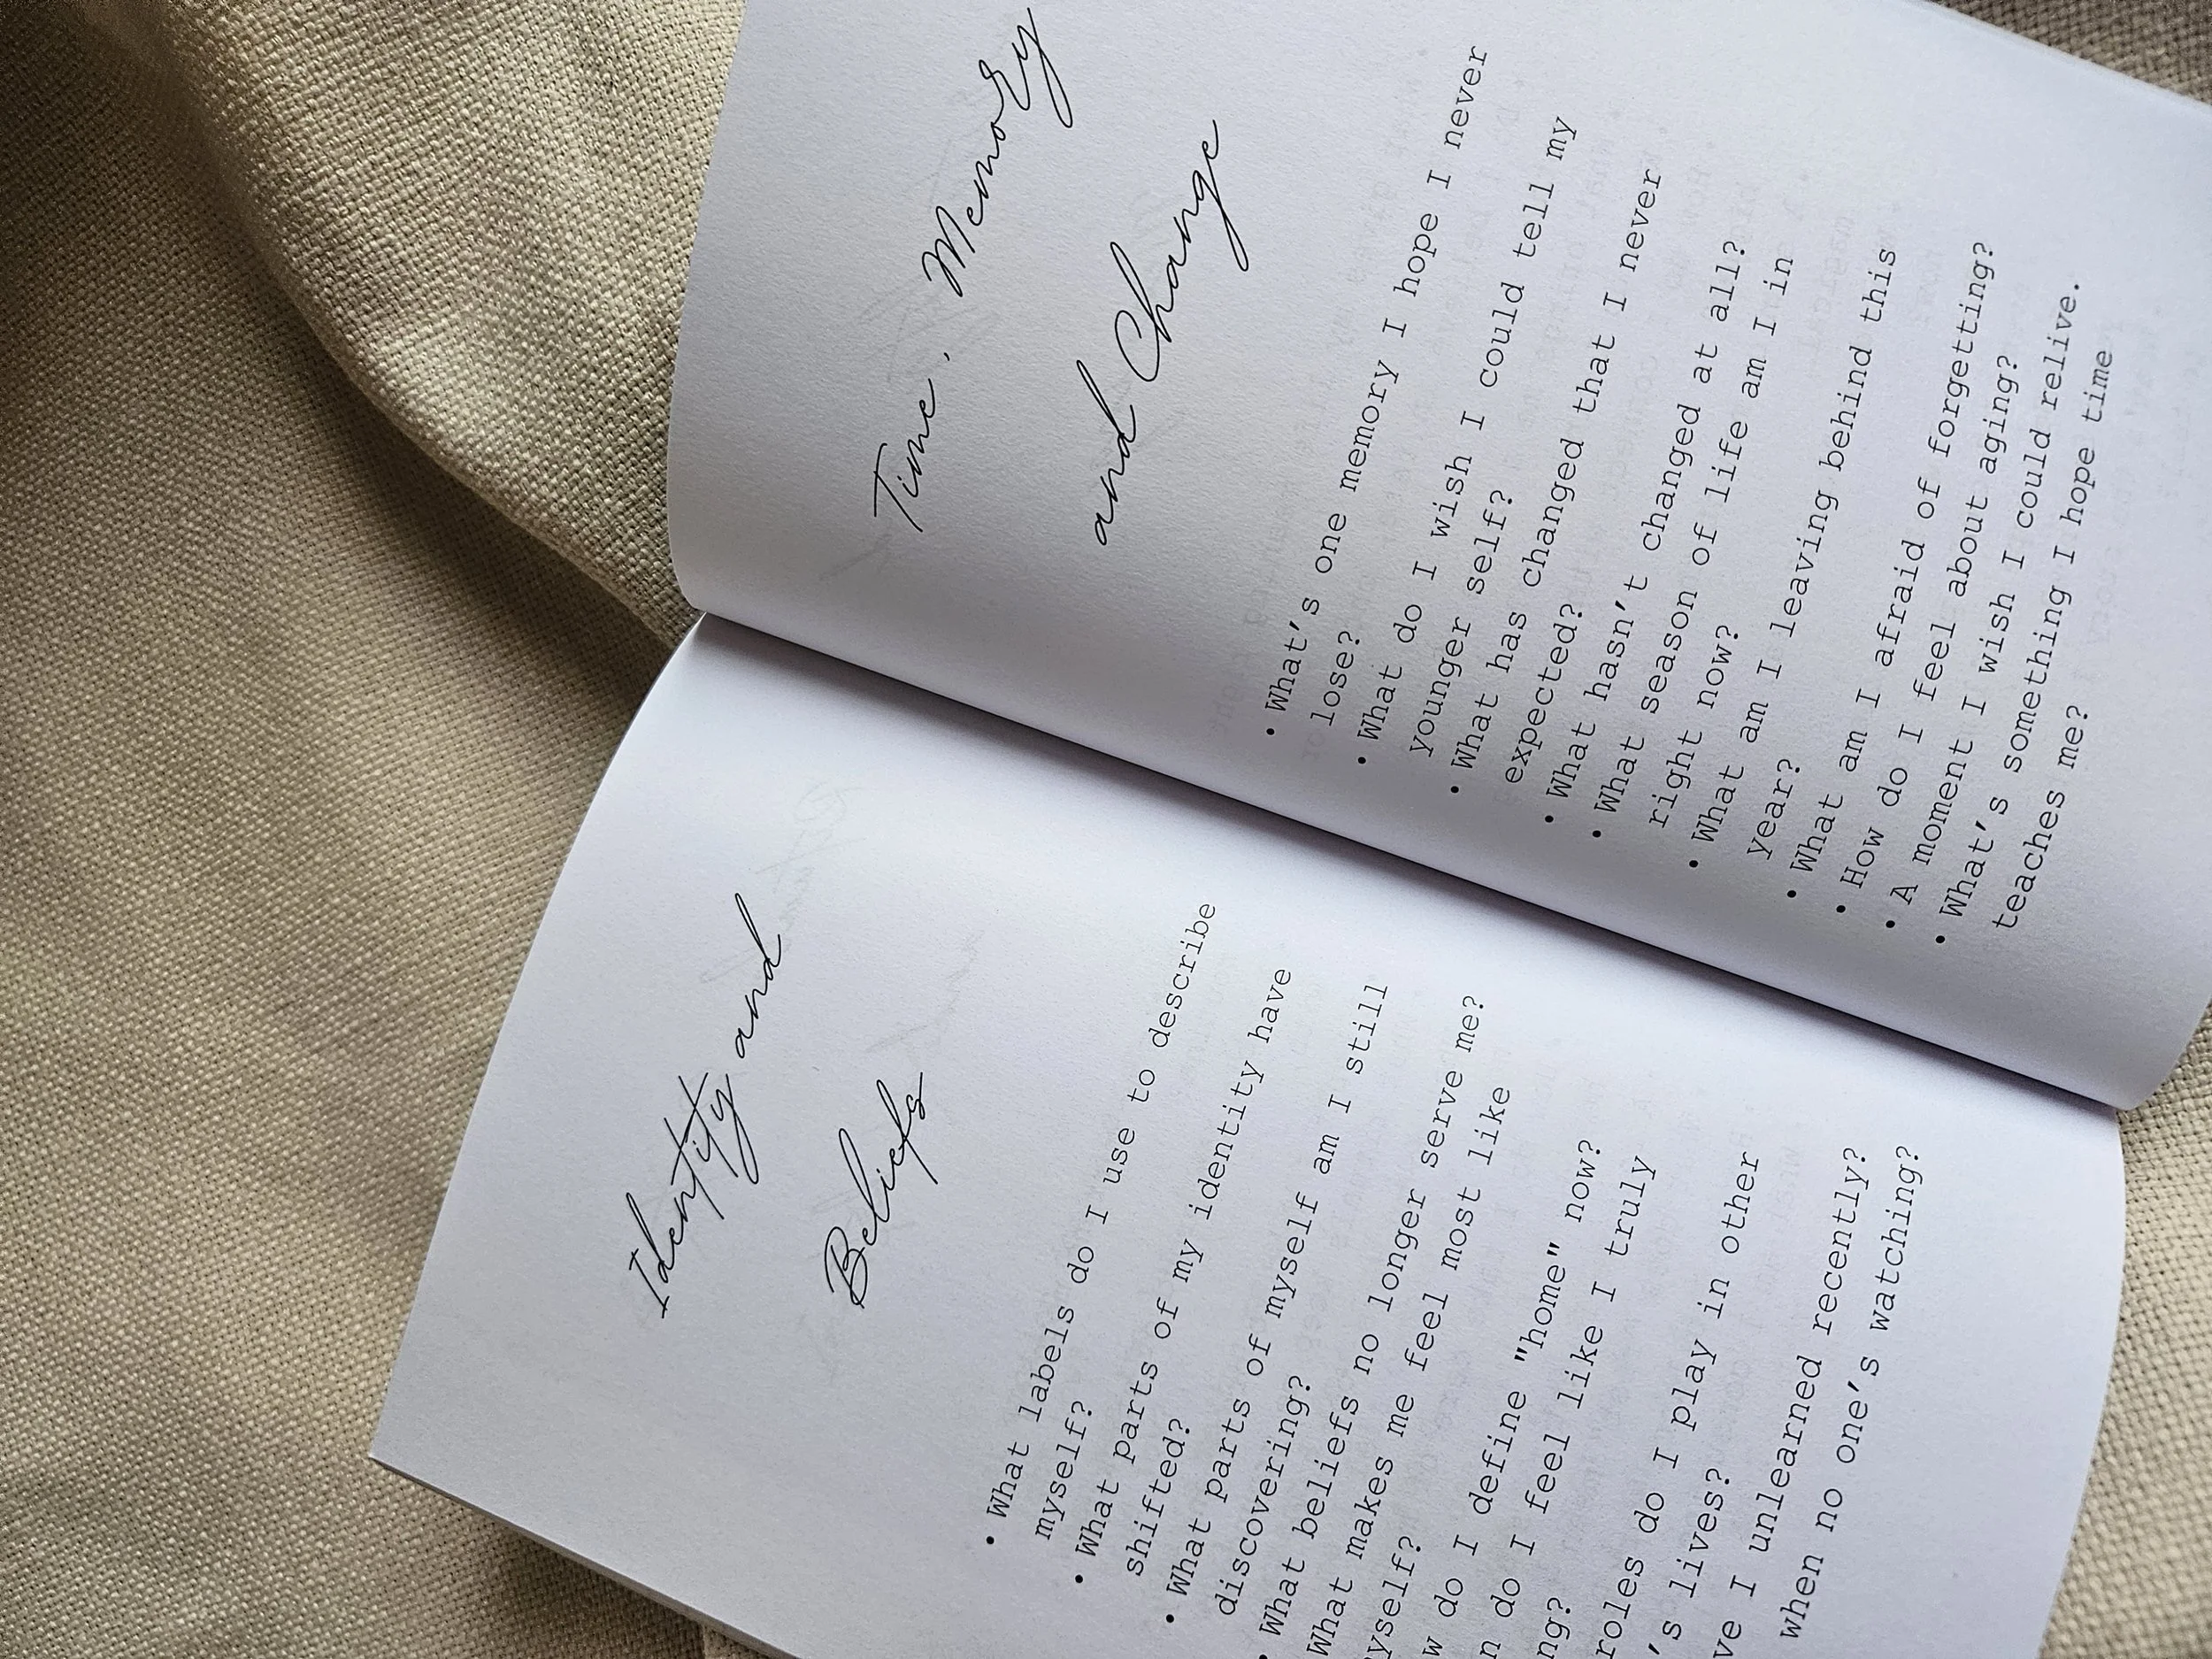 Identity and
Beliefs
• What labels do I use to describe
myself?
• What parts of my identity have
shifted?
• What parts of myself am I still
discovering?
• What beliefs no longer serve me?
What makes me feel most like
yself?
w do I define "home" now?
n do I feel like I truly
ng?
roles do I play in other
's lives?
ve I unlearned recently?
when no one's watching?
Time, Memory
and Change
• What's one memory I hope I never
lose?
• What do I wish I could tell my
younger self?
• What has changed that I never
expected?
• What hasn't changed at all?
• What season of life am I in
right now?
• What am I leaving behind this
year?
• What am I afraid of forgetting?
• How do I feel about aging?
• A moment I wish I could relive.
• What's something I hope time
teaches me?